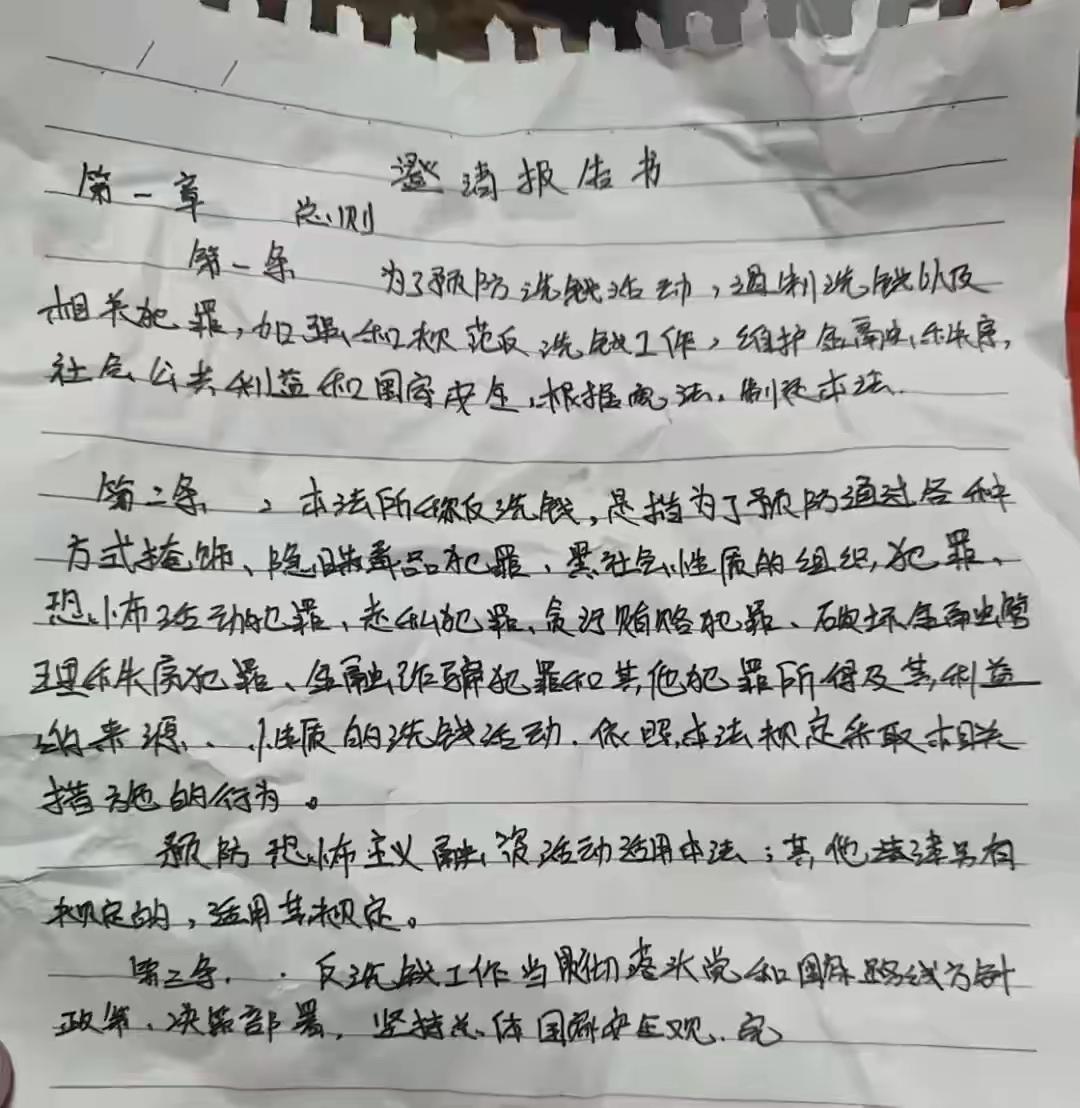 澄清报告书
第一章 总则
第一条 为了预防洗钱活动,遏制洗钱以及
相关犯罪,加强和规范反洗钱工作,维护金融秩序,
社会公共利益和国家安全,根据宪法,制定本法.
第二条、本法所称反洗钱,是指为了预防通过各种
方式掩饰、隐瞒毒品犯罪、黑社会性质的组织犯罪、
恐怖活动犯罪、走私犯罪、贪污贿赂犯罪、破坏金融管
理秩序犯罪、金融诈骗犯罪和其他犯罪所得及其利益
的来源、性质的洗钱活动.依照本法规定采取相关
措施的行为。
预防恐怖主义融资活动适用本法;其他法律另有
规定的,适用其规定。
第三条.反洗钱工作当贯彻落实党和国家路线方针
政策、决策部署,坚持总体国家安全观.完